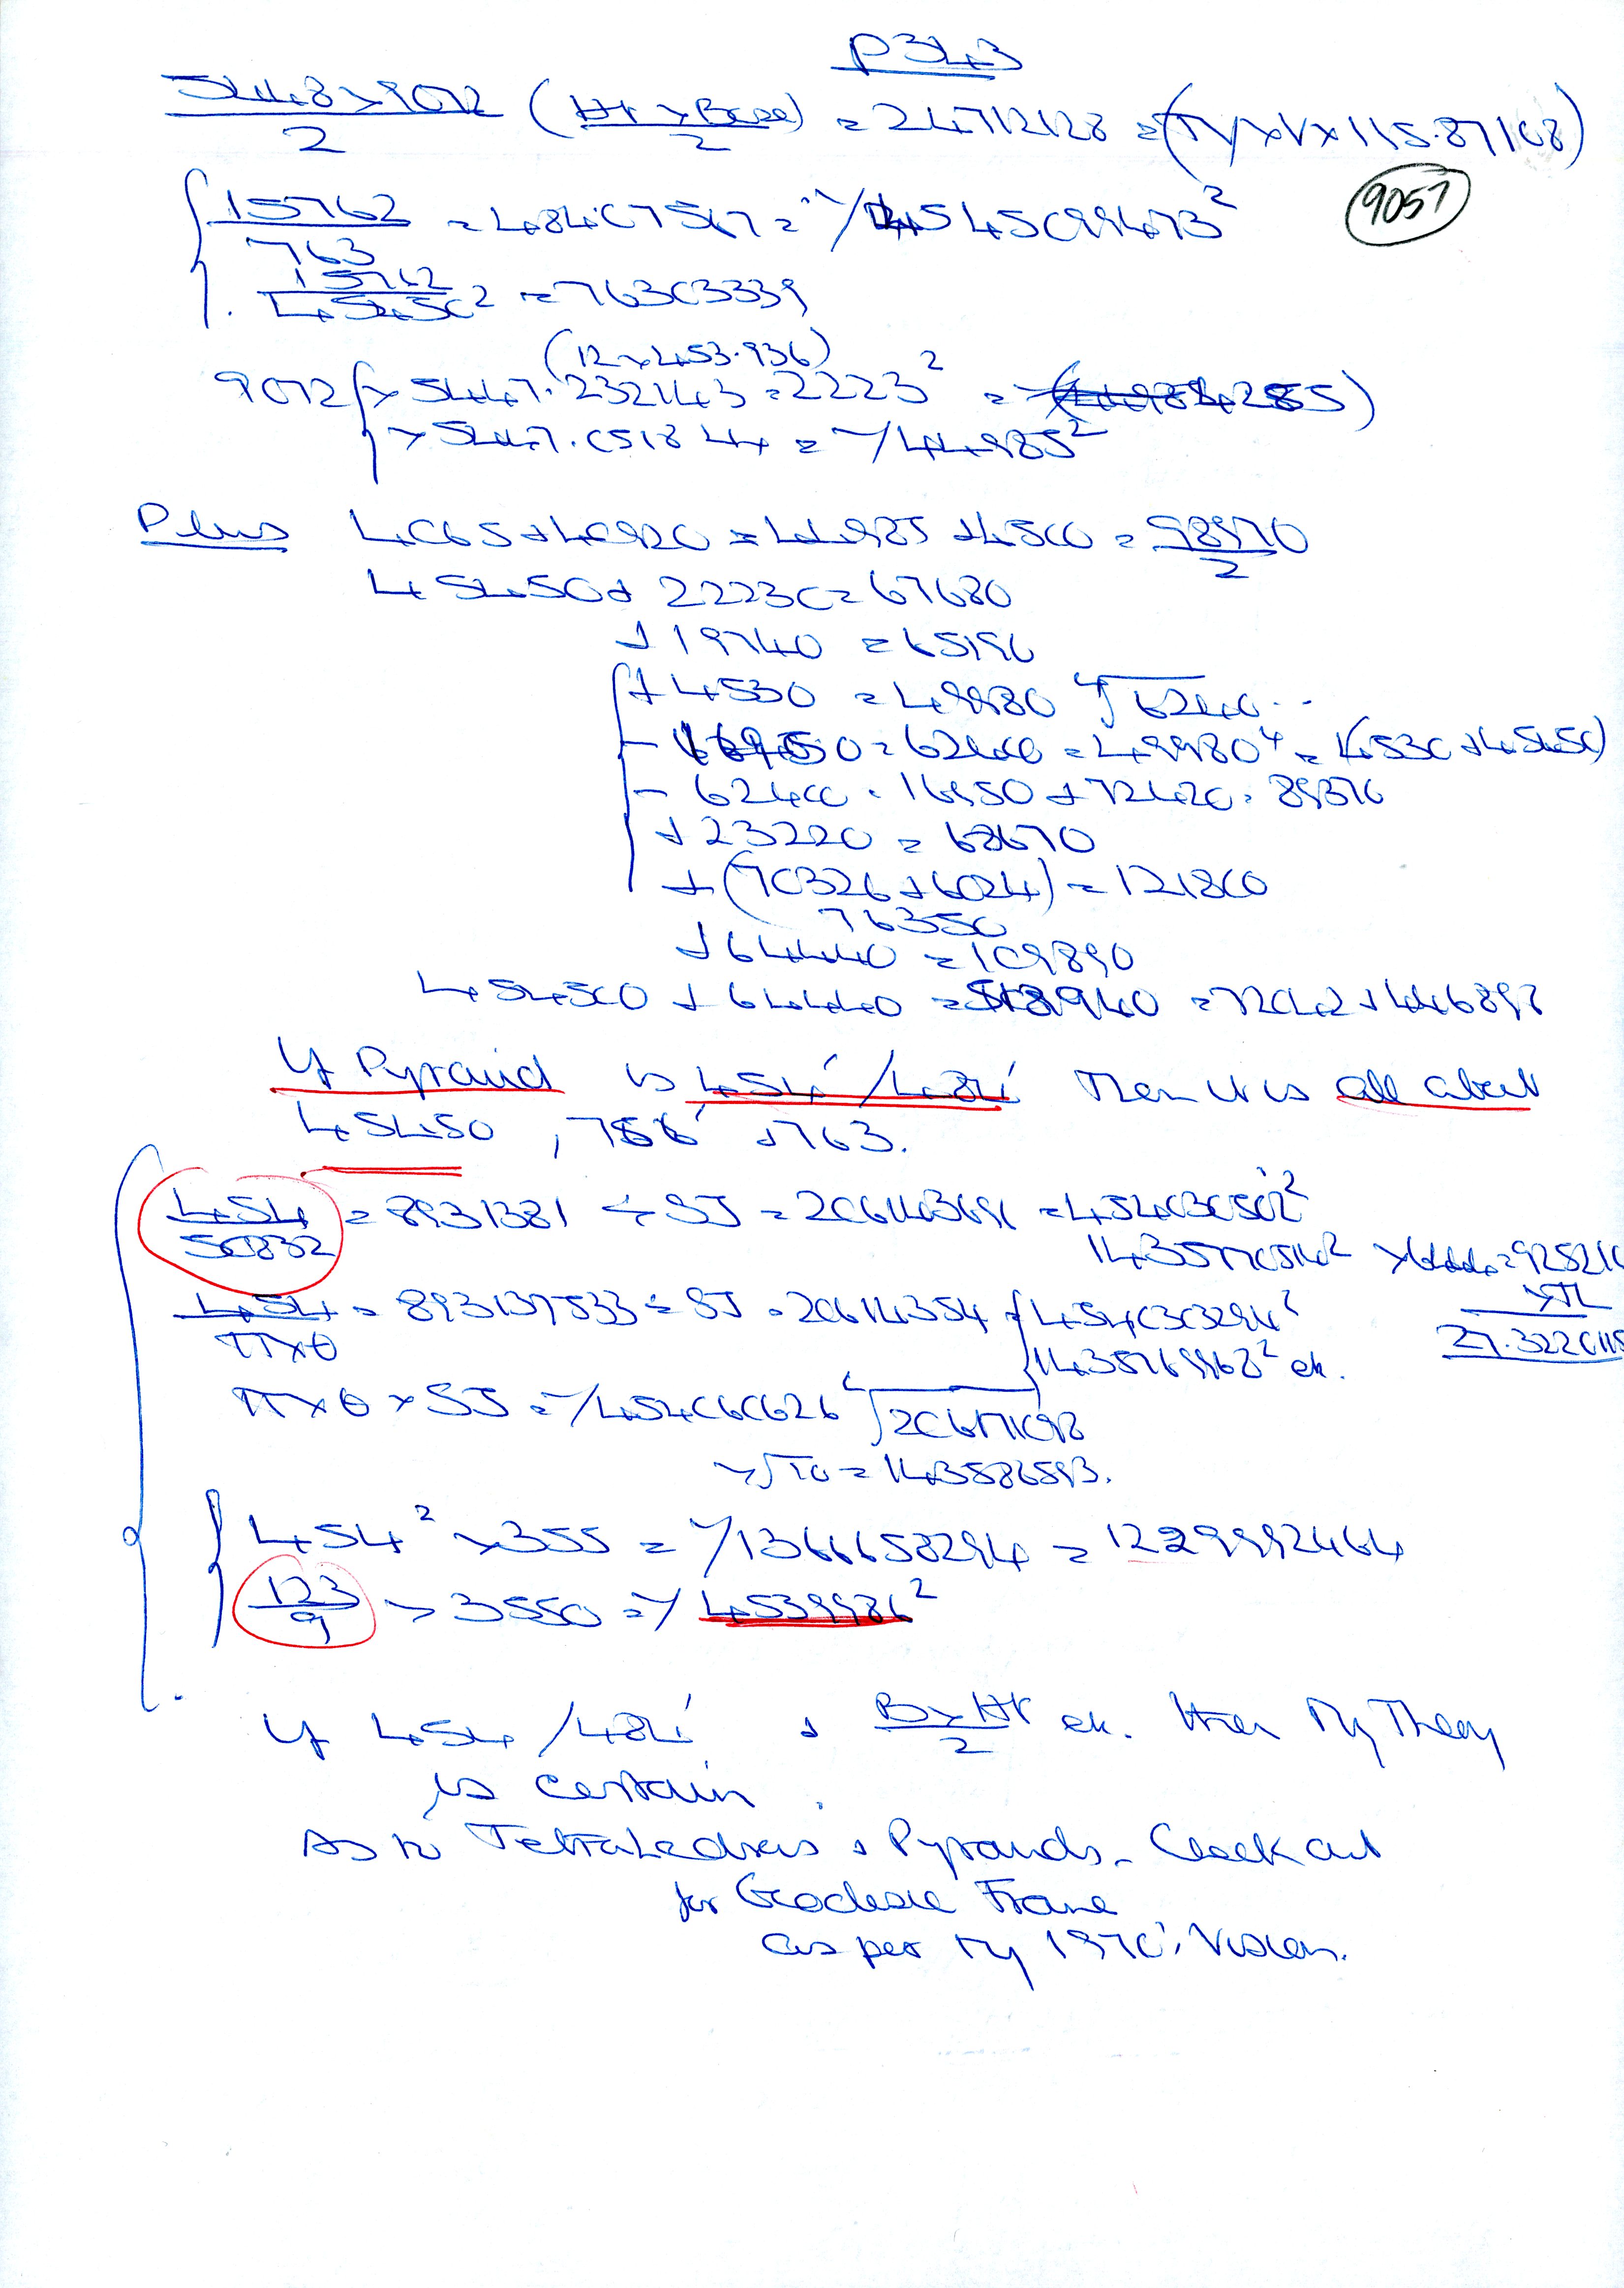 P343
5448 × 9072 / 2 (Ht × Base / 2) = 24712128 = (TY × V × 115.87168)
9057
15762 / 763 = 48407567 = '/. 45450994732
15762 / 45450² = 76303339
(12 × 453.936)
9072 × 5447.232143 = 2223² =
× 5447.051844 = '/. 44985²
Plus 4065 + 40920 = 44985 + 4500 = 98970 / 2
45450 + 22230 = 67680
+ 19740 = 65190
+ 4530 = 49980 ⁴√6240..
- 16950 = 62400 = 49980⁴ = (4530 + 45450)
- 62400 . 16950 + 72420 = 89370
+ 23220 = 68670
+ (70326 + 6024) = 121800
76350
+ 64440 = 109890
454500 + 64440 = 518940 = 72042 + 446898
If Pyramid is 454' / 484' Then it is all about
45450 , 756' + 763.
454 / 50832 = 8931381 ÷ SJ = 2061143691 = 454030502²
1435770514² × 444 = 925216
454 / π × θ = 893137533 ÷ SJ = 206114354 4540303294²
× π
1435769968² etc.
27.3220115
π × θ × SJ = '/. 454060626 √206171098
× √10 = 143586593.
454² × 355 = '/. 1366658294 = 1229992464
123 / 9 × 3550 = '/. 4539986²
If 454 / 484' + B × Ht / 2 etc. then My Theory
is certain.
As to Tetrahedrons + Pyramids - Check out
for Geodesic Frame
as per my 1970's Vision.